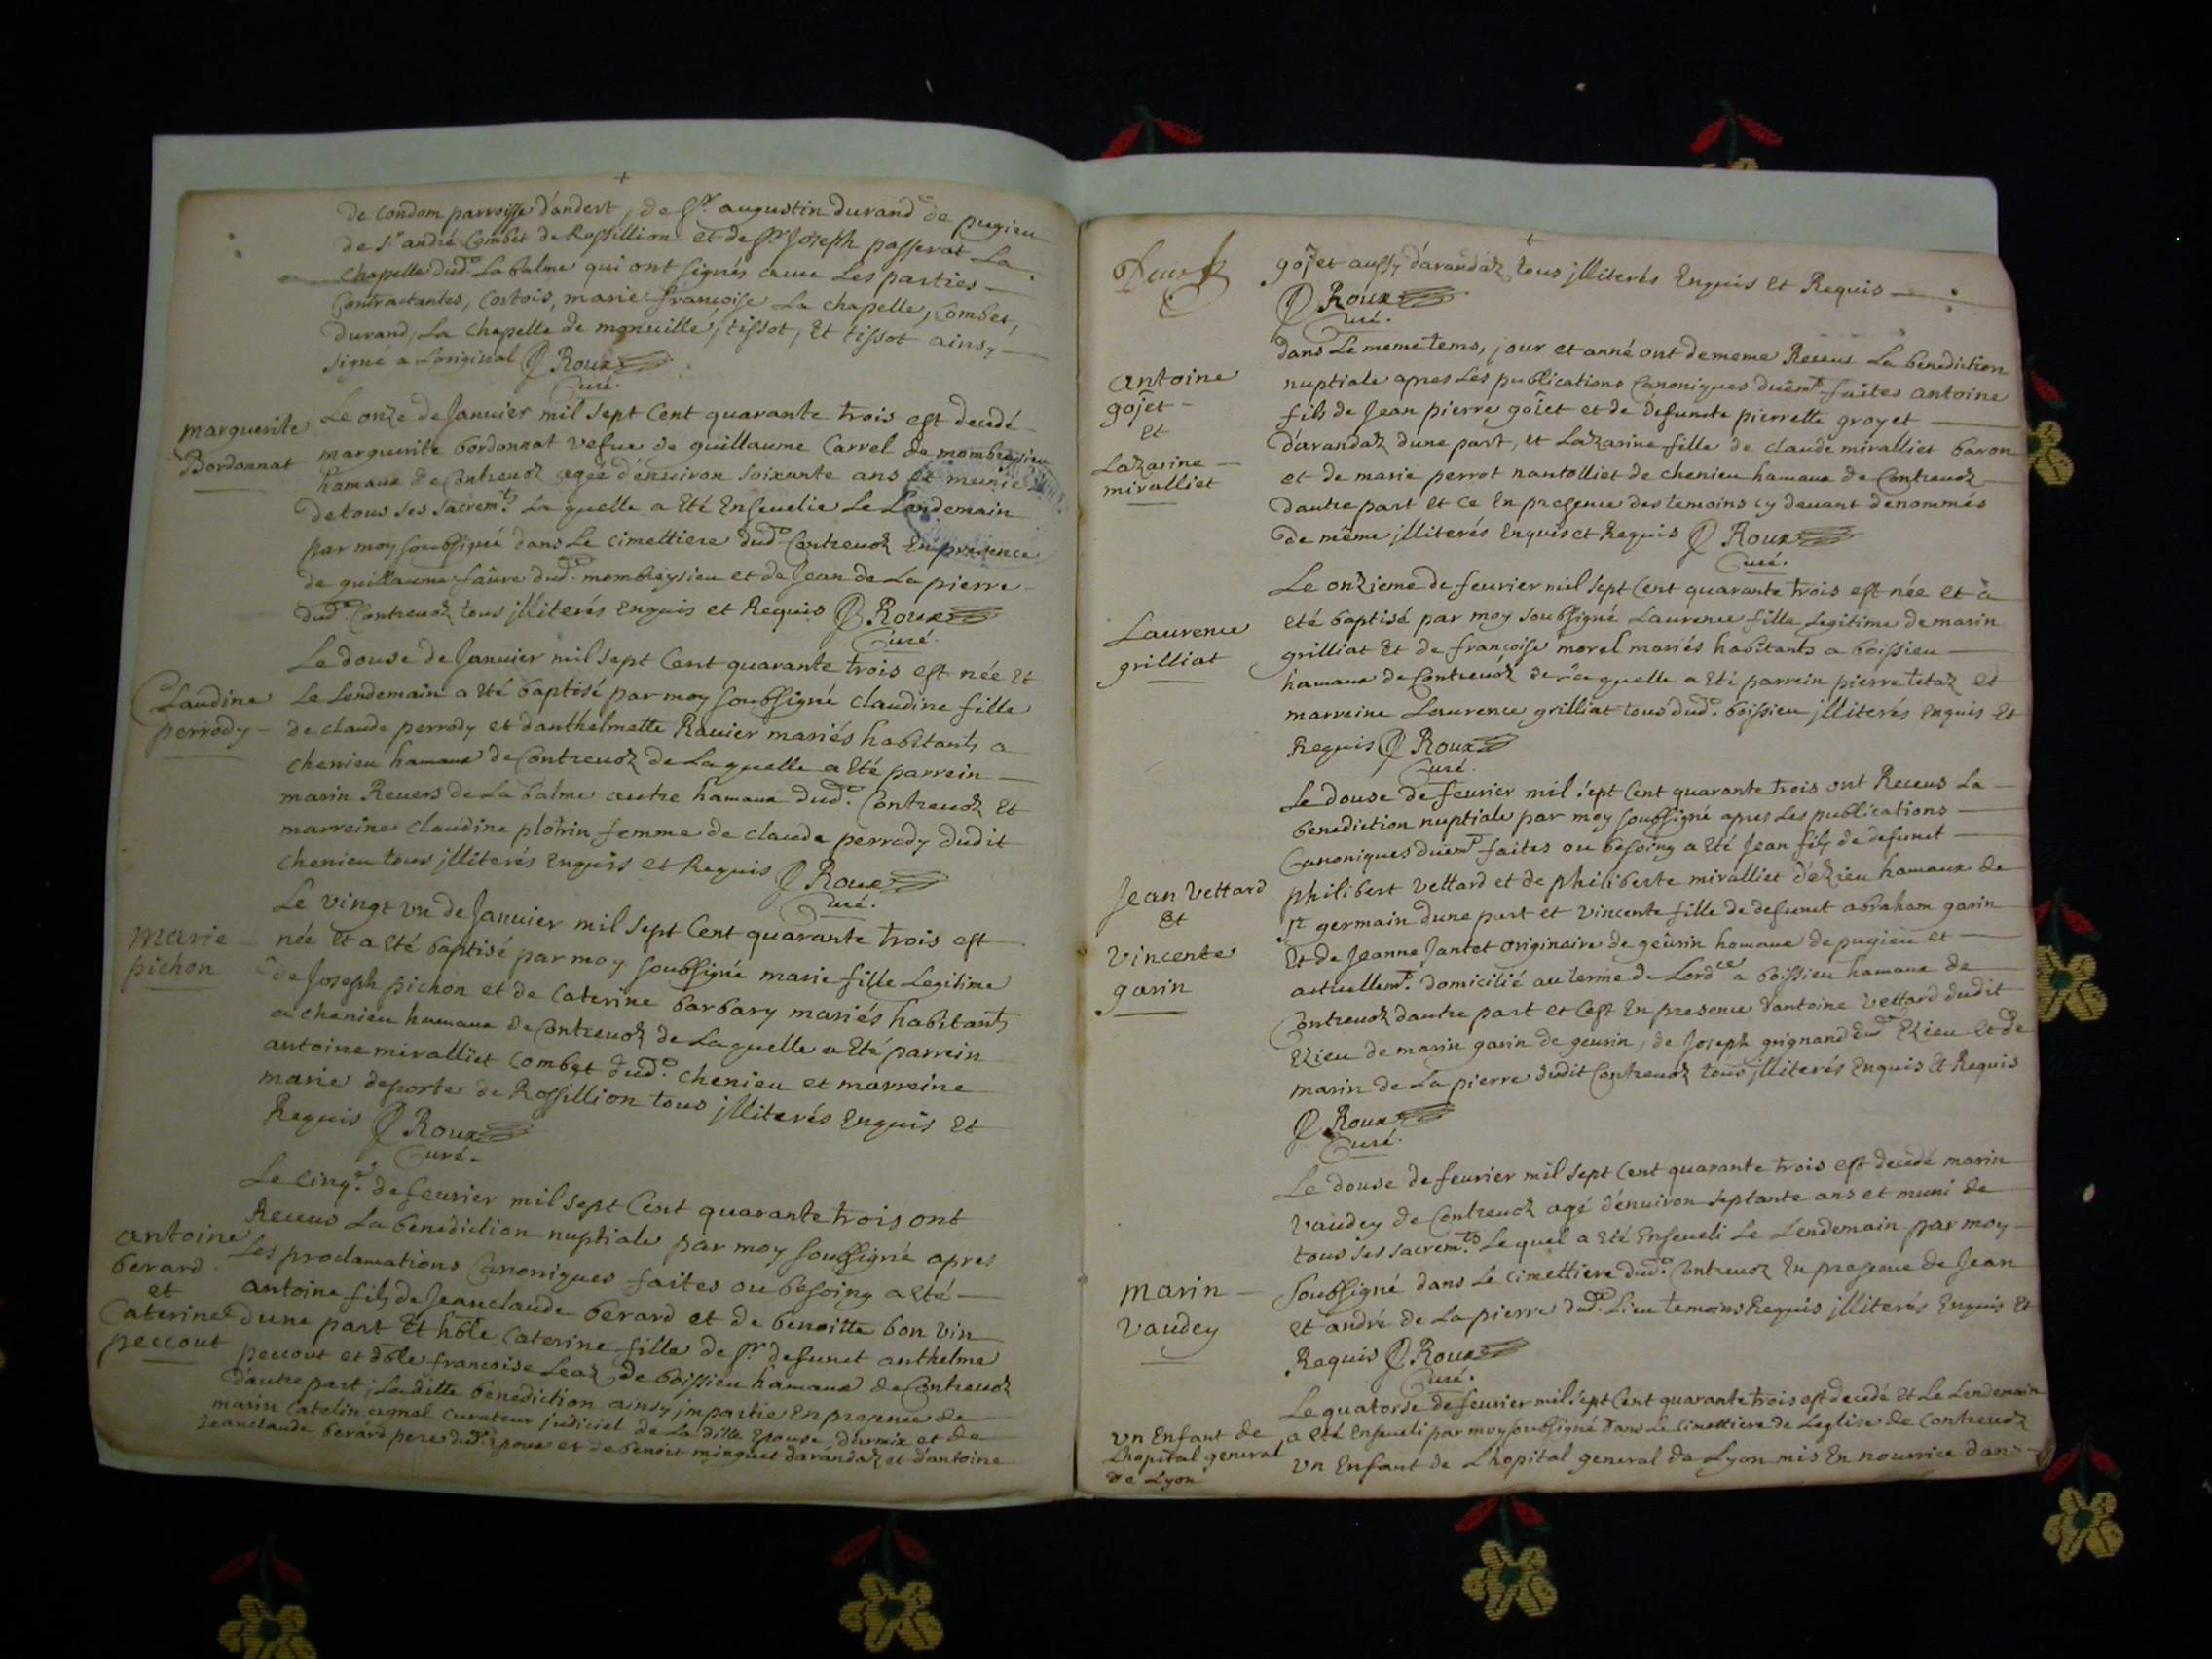 de Condom parroisse d'andert, de Sr. augustin durand de pugieu
de Sr andré Combet de Rossillion et de Sr Joseph passerat La
Chapelle dud. La balme qui ont signés avec Les parties
Contractantes, Cortois, marie françoise La chapelle, Combet,
durand, La chapelle de monuille, tissot, Et tissot ainsy
signé a Loriginal Roux
Curé.
marguerite
Bordonnat
Le onze de Januier mil sept Cent quarante trois est decedé
marguerite bordonnat vefue de guillaume Carrel de mombreysieu
hamaux de Contreuoz agée d'enuiron soixante ans et munie
de tous ses sacremts. La quelle a Eté Enseuelie Le Landemain
par moy soubsigné dans Le cimettiere dud. Contreuoz En presence
de guillaume faûre dud. mombreysieu et de Jean de La pierre
dud. Contreuoz tous jlliterés Enquis et Requis Roux
Curé.
Claudine
perrody
Le douse de Januier mil sept Cent quarante trois est née Et
Le Lendemain a Eté baptisé par moy soubsigné claudine fille
de claude perrody et danthelmette Rauier mariés habitants a
chenieu hamaux de Contreuoz de Laquelle a Eté parrein
marin Reuers de La balme autre hamaux dud. Contreuoz Et
marreine claudine plotrin femme de claude perrody dudit
chenieu tous jlliterés Enquis et Requis Roux
Curé.
marie
pichon
Le vingt vn de Januier mil sept Cent quarante trois est
née Et a Eté baptisé par moy soubsigné marie fille Legitime
de Joseph pichon et de Caterine barbary mariés habitants
a chenieu hamaux de Contreuoz de Laquelle a Eté parrein
antoine miralliet Combet dud. chenieu et marreine
marie deporte de Rossillion tous jlliterés Enquis Et
Requis Roux
Curé.
antoine
berard
et
Caterine
peccout
Le cinqe. de feurier mil sept Cent quarante trois ont
Receus La benediction nuptiale par moy soubsigné apres
Les proclamations Canoniques faites ou besoing a Eté
antoine fils de Jeanclaude berard et de benoitte bon vin
dune part Et hble Caterine fille de Sr defunct anthelme
peccout et dble francoise Leaz de boissieu hamaux de Contreuoz
dautre part; Laditte benediction ainsy jmpartie En presence de
marin Catelin agnel Curateur judiciel de La ditte Epouse et de
Jeanclaude berard pere dud. Epoux et de benoit minguet darandaz et dantoine
gojet aussy d'arandaz tous jlliterés Enquis Et Requis
Roux
Curé.
antoine
gojet
et
Lazarine
miralliet
dans Le meme tems, jour et anné ont dememe Receus La benediction
nuptiale apres Les publications Canoniques duëmt. faites antoine
fils de Jean pierre gojet et de defuncte pierrette groyet
d'arandaz dune part, et Lazarine fille de claude miralliet baron
et de marie perrot nantolliet de chenieu hamaux de Contreuoz
dautre part Et ce En presence des temoins cy deuant denommés
de même jlliterés Enquis et Requis Roux
Curé.
Laurence
grilliat
Le onzieme de feurier mil sept Cent quarante trois est née et a
Eté baptisé par moy soubsigné Laurence fille Legitime de marin
grilliat Et de françoise morel mariés habitants a boissieu
hamaux de Contreuoz de Laquelle a Eté parrein pierre tetaz et
marreine Laurence grilliat tous dud. boissieu jlliterés Enquis Et
Requis Roux
Curé.
Jean Vettard
et
Vincente
garin
Le douse de feurier mil sept Cent quarante trois ont Receus La
benediction nuptiale par moy soubsigné apres Les publications
Canoniques duemt. faites ou besoing a Eté Jean fils de defunct
philibert Vettard et de philiberte miralliet d'Ezieu hamaux de
St germain dune part et Vincente fille de defunct abraham garin
Et de Jeanne Jantet originaire de geürin hamaux de pugieu et
actuellemt. domicilié au terme de Lordce a boissieu hamaux de
Contreuoz dautre part et Cest En presence dantoine Vettard dudit
Ezieu de marin garin de geurin, de Joseph grignand dud. Ezieu Et de
marin de La pierre dudit Contreuoz tous jlliterés Enquis Et Requis
Roux
Curé.
marin
Vaudey
Le douse de feurier mil sept Cent quarante trois est decedé marin
Vaudey de Contreuoz agé d'enuiron septante ans et muni de
tous ses sacremts. Lequel a Eté Enseueli Le Lendemain par moy
soubsigné dans Le cimettiere dud. Contreuoz En presence de Jean
et andré de La pierre dud. Lieu temoins Requis jlliterés Enquis Et
Requis Roux
Curé.
vn Enfant de
Lhopital general
de Lyon
Le quatorse de feurier mil sept Cent quarante trois est decedé Et Le Lendemain
a Eté Enseueli par moy soubsigné dans Le Cimettiere de Leglise de Contreuoz
vn Enfant de Lhopital general de Lyon mis En nourrice dans